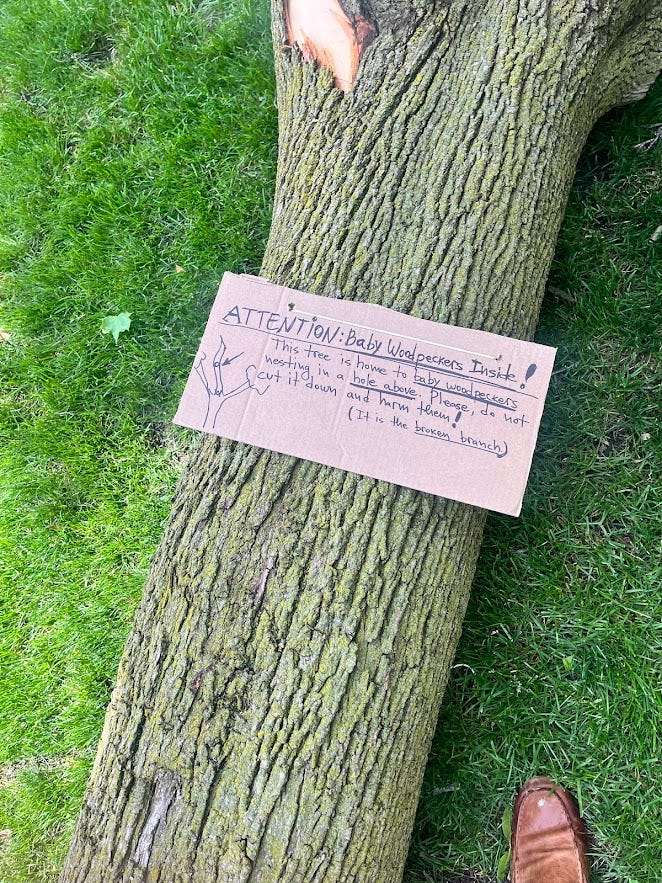 ATTENTION: Baby Woodpeckers Inside!
This tree is home to baby woodpeckers
nesting in a hole above. Please, do not
cut it down and harm them!
(It is the broken branch)